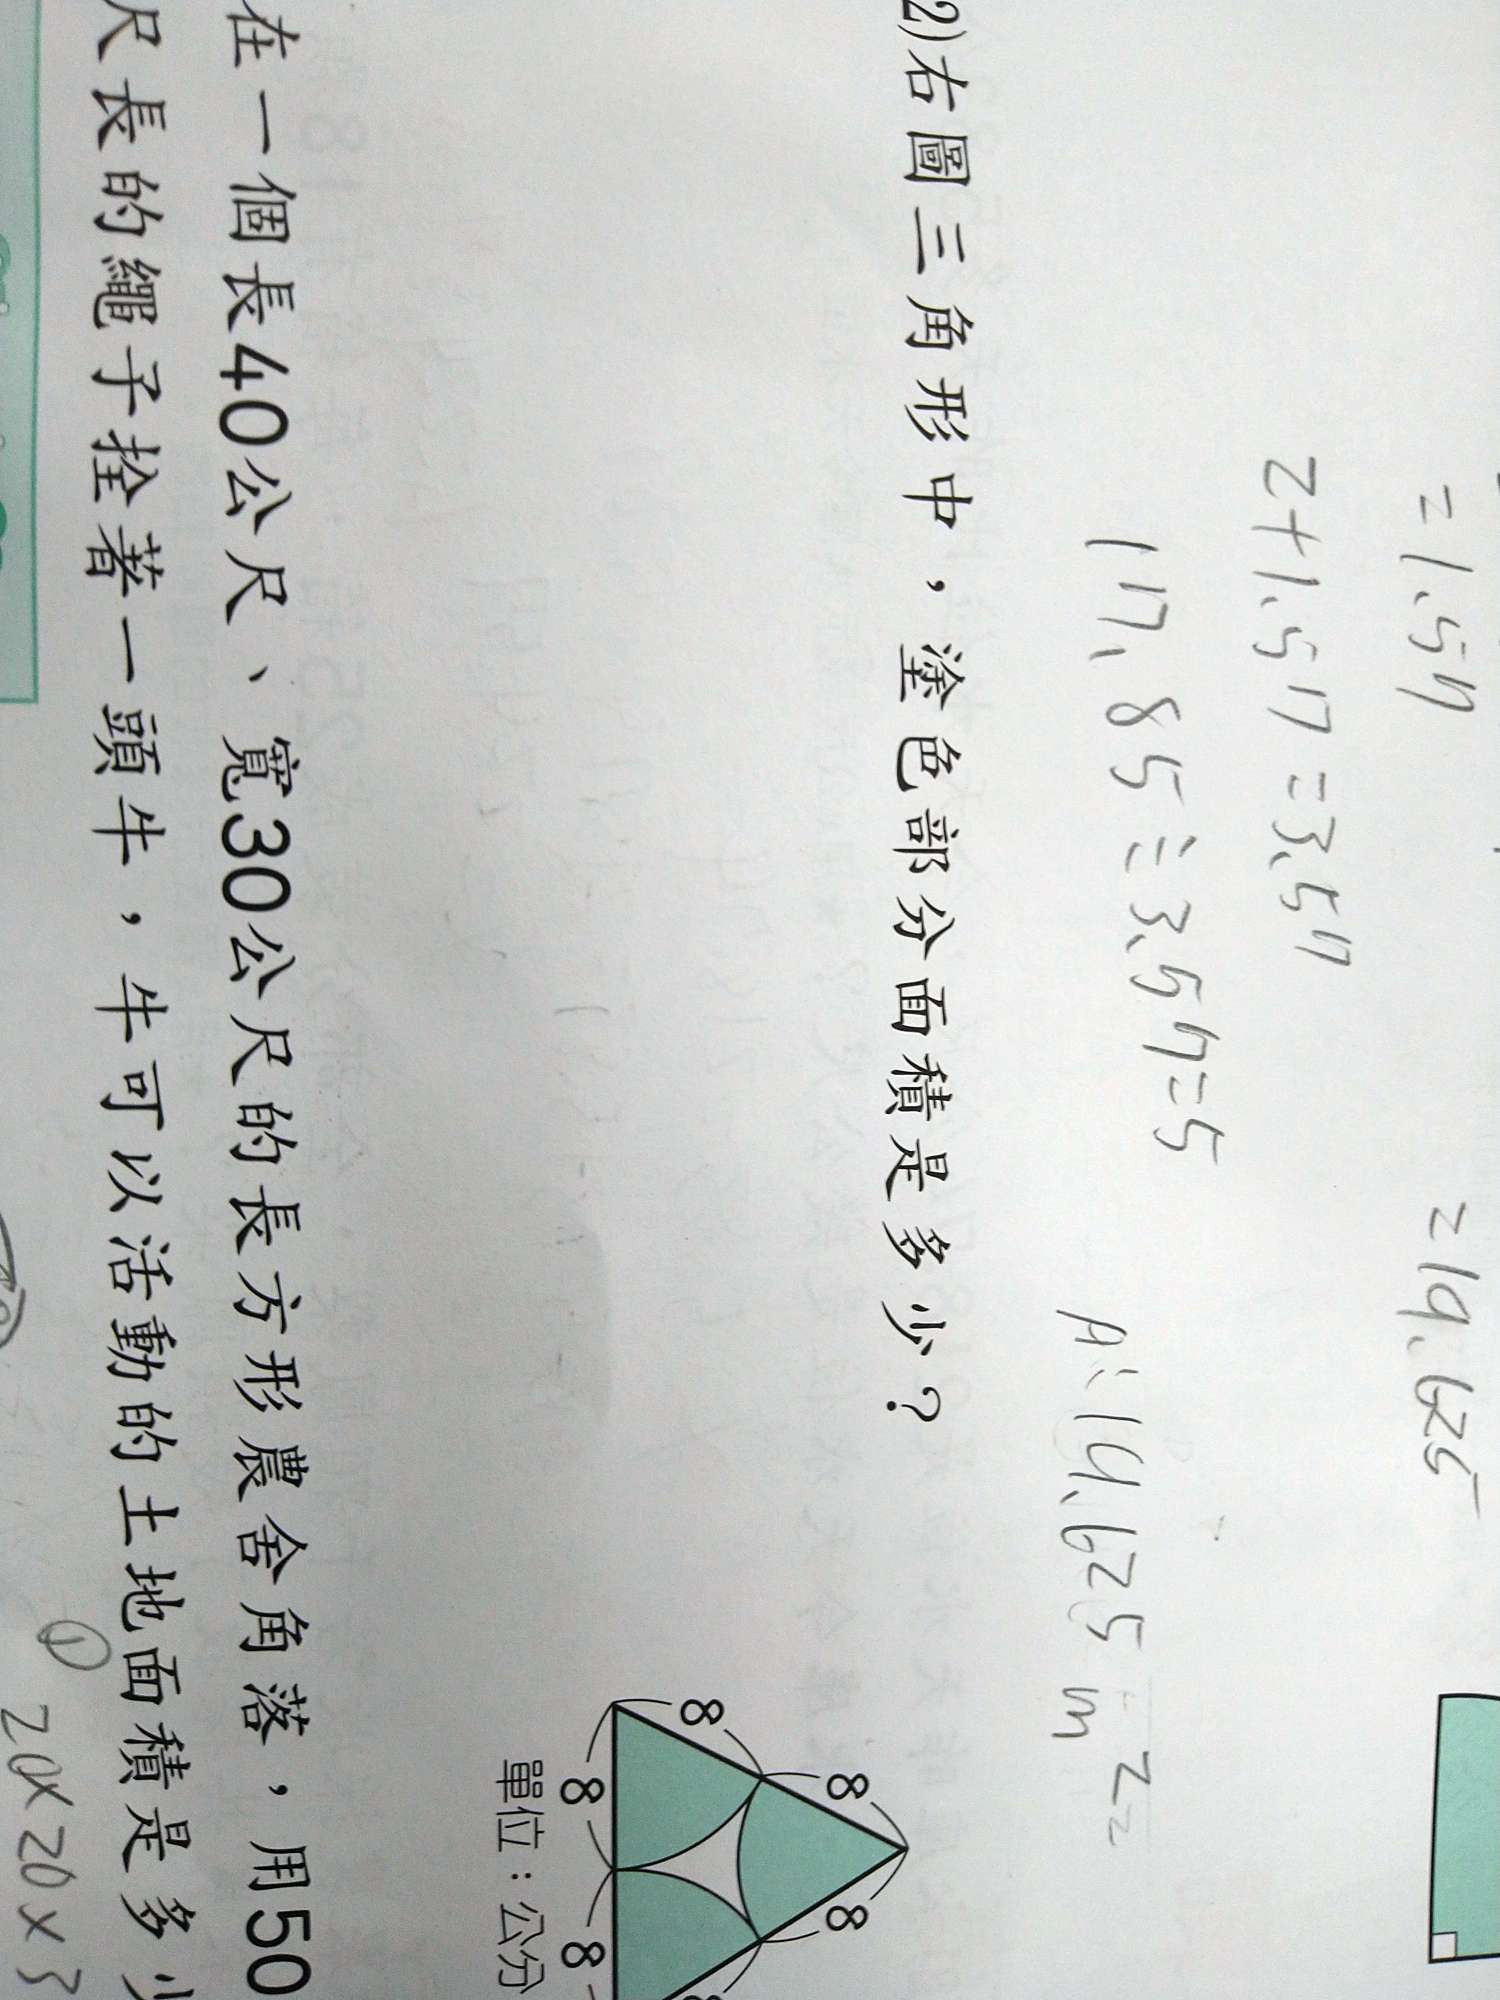 =1.57
=19.625
2+1.57=3.57
17.85÷3.57=5
A:19.625m²
2)右圖三角形中，塗色部分面積是多少？
8 8
8 8
8 8
單位：公分
在一個長40公尺、寬30公尺的長方形農舍角落，用50
尺長的繩子拴著一頭牛，牛可以活動的土地面積是多少
①
20×20×3